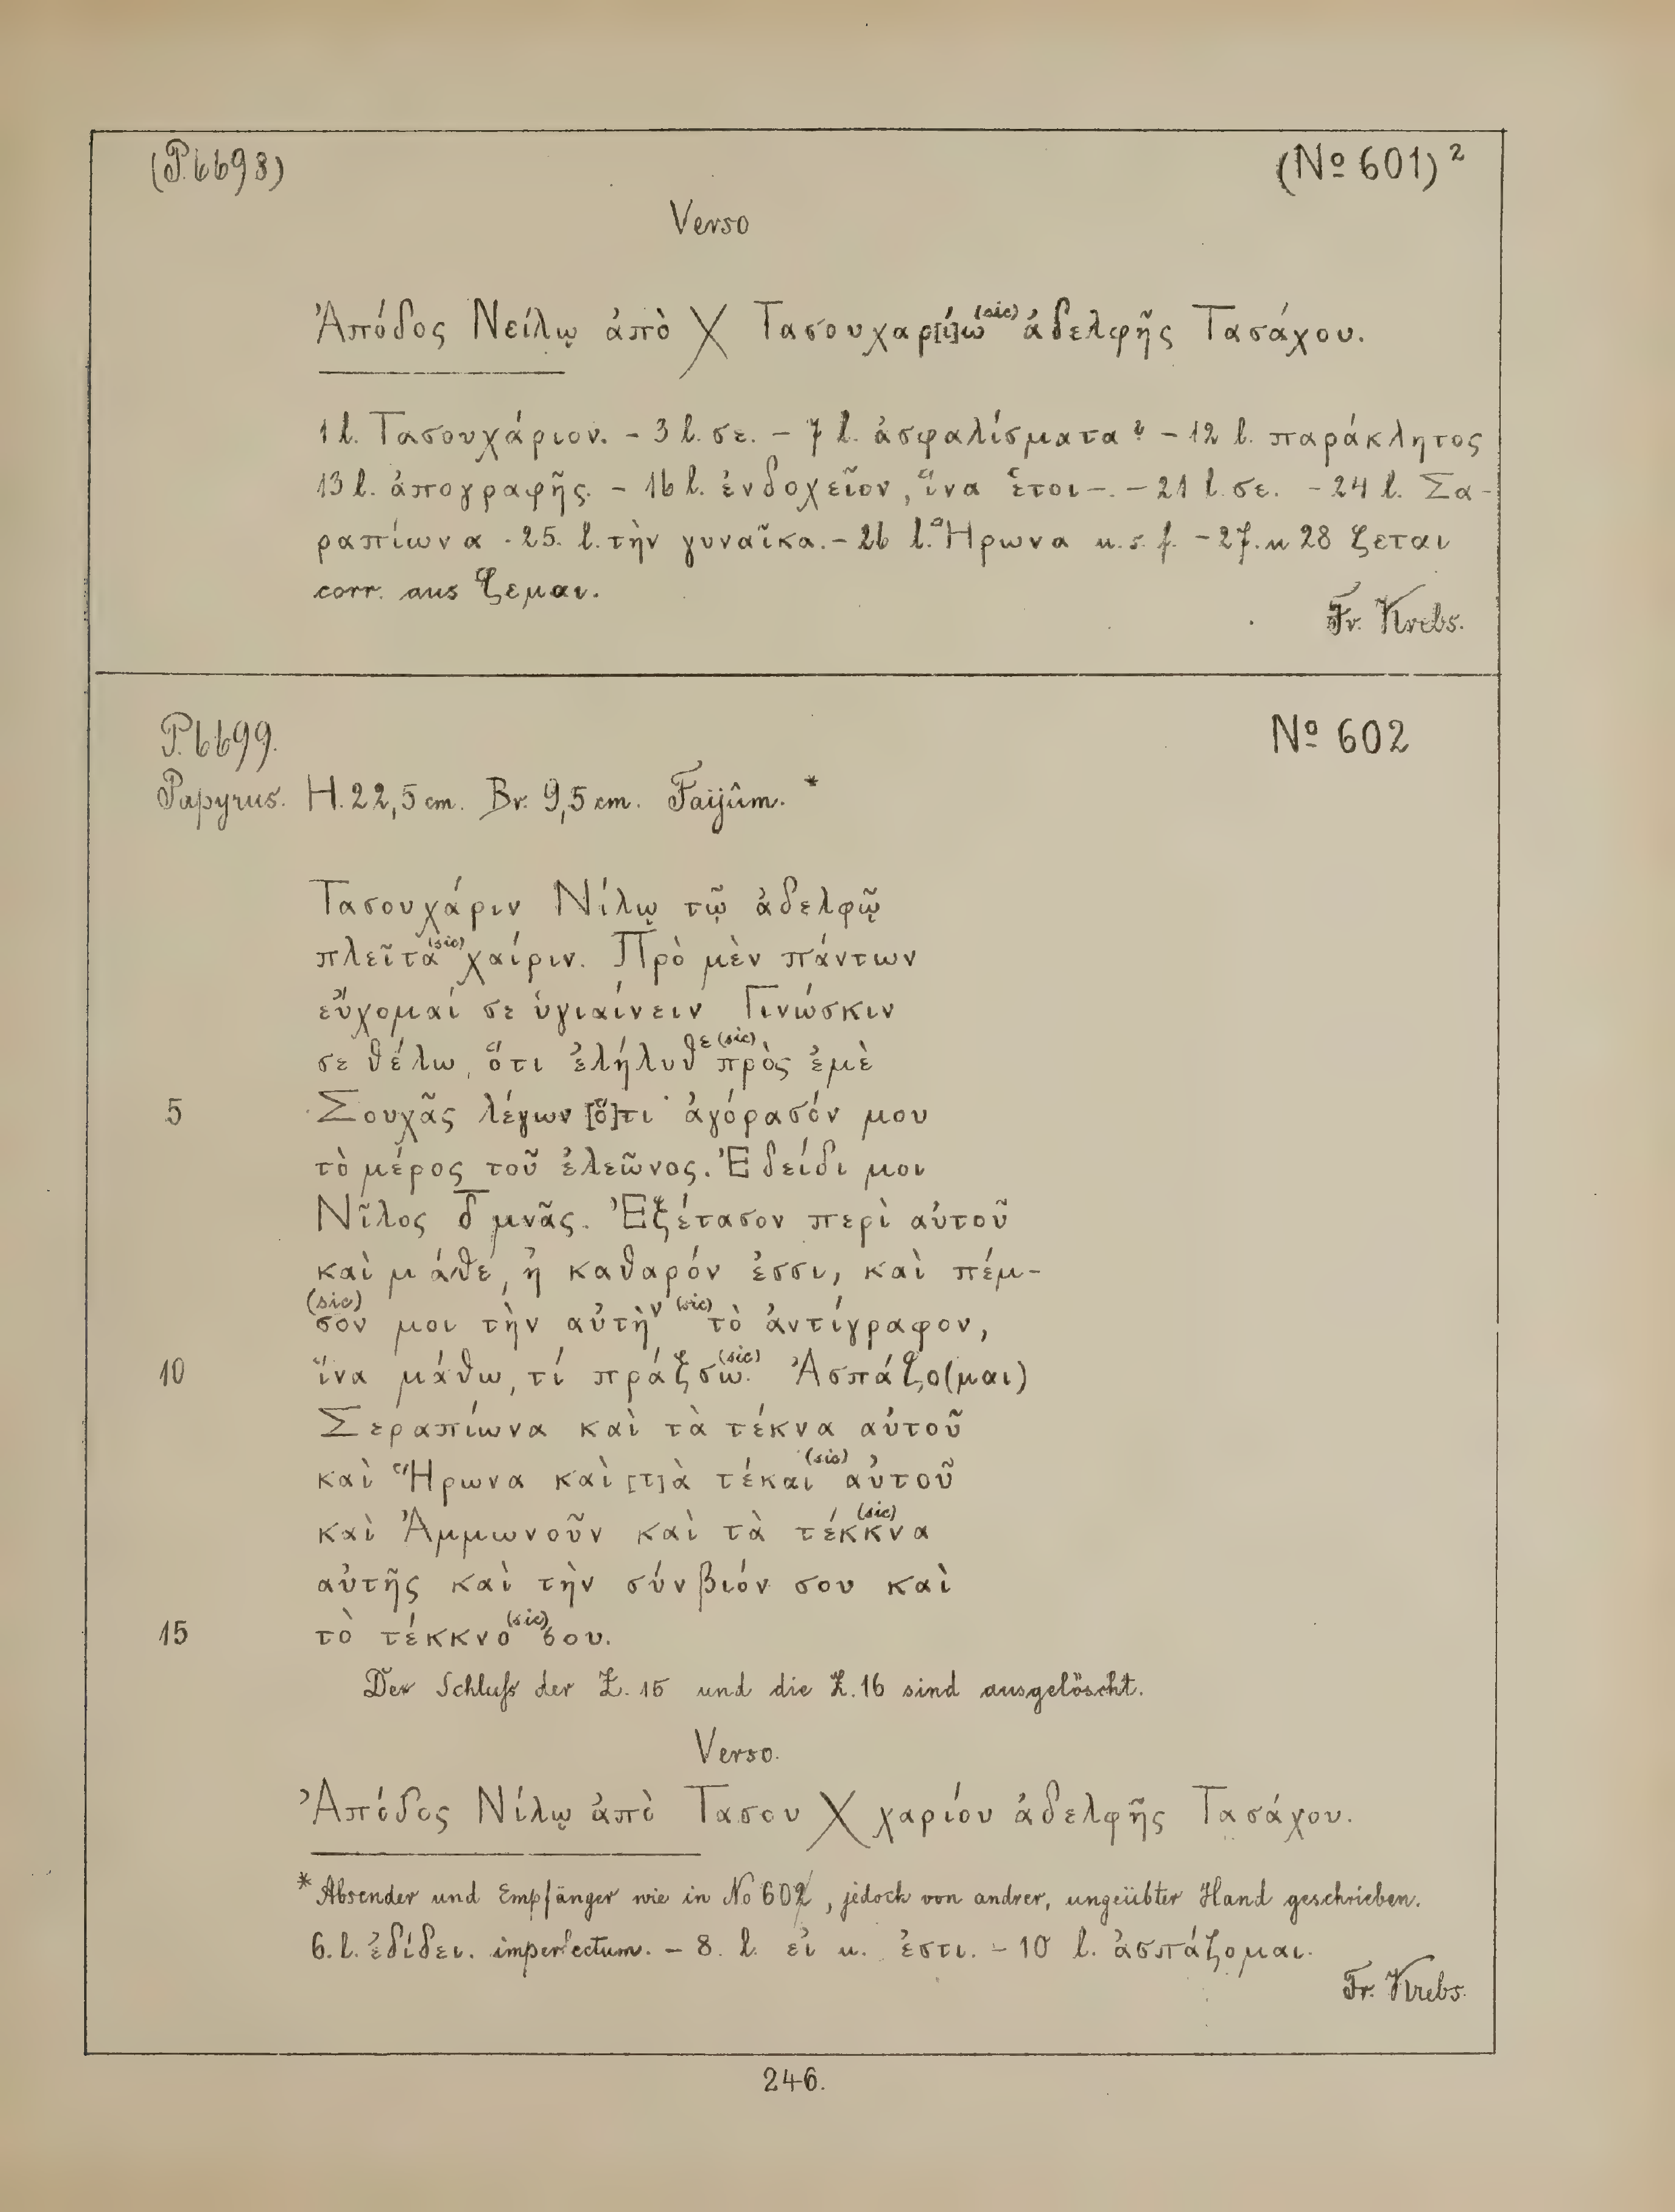 (P. 6698)
(No 601)²
Verso
Ἀπόδος Νείλῳ ἀπὸ X Τασουχαρ[ί]ω (sic) ἀδελφῆς Τασάχου.
1 l. Τασουχάριον. – 3 l. σε. – 7 l. ἀσφαλίσματα? – 12 l. παράκλητος
13 l. ἀπογραφῆς. – 16 l. ἐνδοχεῖον, ἵνα ἕτοι–. – 21 l. σε. – 24 l. Σα-
ραπίωνα · 25. l. τὴν γυναῖκα. – 26 l. Ἥρωνα u. s. f. – 27. u 28 ζεται
corr. aus ζεμαι.
Fr. Krebs.
P. 6699.
No 602
Papyrus. H. 22,5 cm. Br. 9,5 cm. Faijûm. *
Τασουχάριν Νίλῳ τῷ ἀδελφῷ
πλεῖτα (sic) χαίριν. Πρὸ μὲν πάντων
εὔχομαί σε ὑγιαίνειν Γινώσκιν
σε θέλω, ὅτι ἐλήλυθε (sic) πρὸς ἐμὲ
5 Σουχᾶς λέγων [ὅ]τι· ἀγόρασόν μου
τὸ μέρος τοῦ ἐλεῶνος. Ἐδείδι μοι
Νῖλος δ̅ μνᾶς. Ἐξέτασον περὶ αὐτοῦ
καὶ μάθε, ἠ καθαρόν ἐσσι, καὶ πέμ-
(sic) σον μοι τὴν αὐτὴν (sic) τὸ ἀντίγραφον,
10 ἵνα μάθω, τί πράξσω (sic). Ἀσπάζο(μαι)
Σεραπίωνα καὶ τὰ τέκνα αὐτοῦ
καὶ Ἥρωνα καὶ [τ]ὰ τέκαι (sic) αὐτοῦ
καὶ Ἀμμωνοῦν καὶ τὰ τέκκνα (sic)
αὐτῆς καὶ τὴν σύνβιόν σου καὶ
15 τὸ τέκκνο (sic) σου.
Der Schluß der Z. 15 und die Z. 16 sind ausgelöscht.
Verso.
Ἀπόδος Νίλῳ ἀπὸ Τασου X χαρίου ἀδελφῆς Τασάχου.
* Absender und Empfänger wie in No 602, jedoch von andrer, ungeübter Hand geschrieben.
6. l. ἐδίδει. imperfectum. – 8. l. εἰ u. ἐστι. – 10 l. ἀσπάζομαι.
Fr. Krebs.
246.